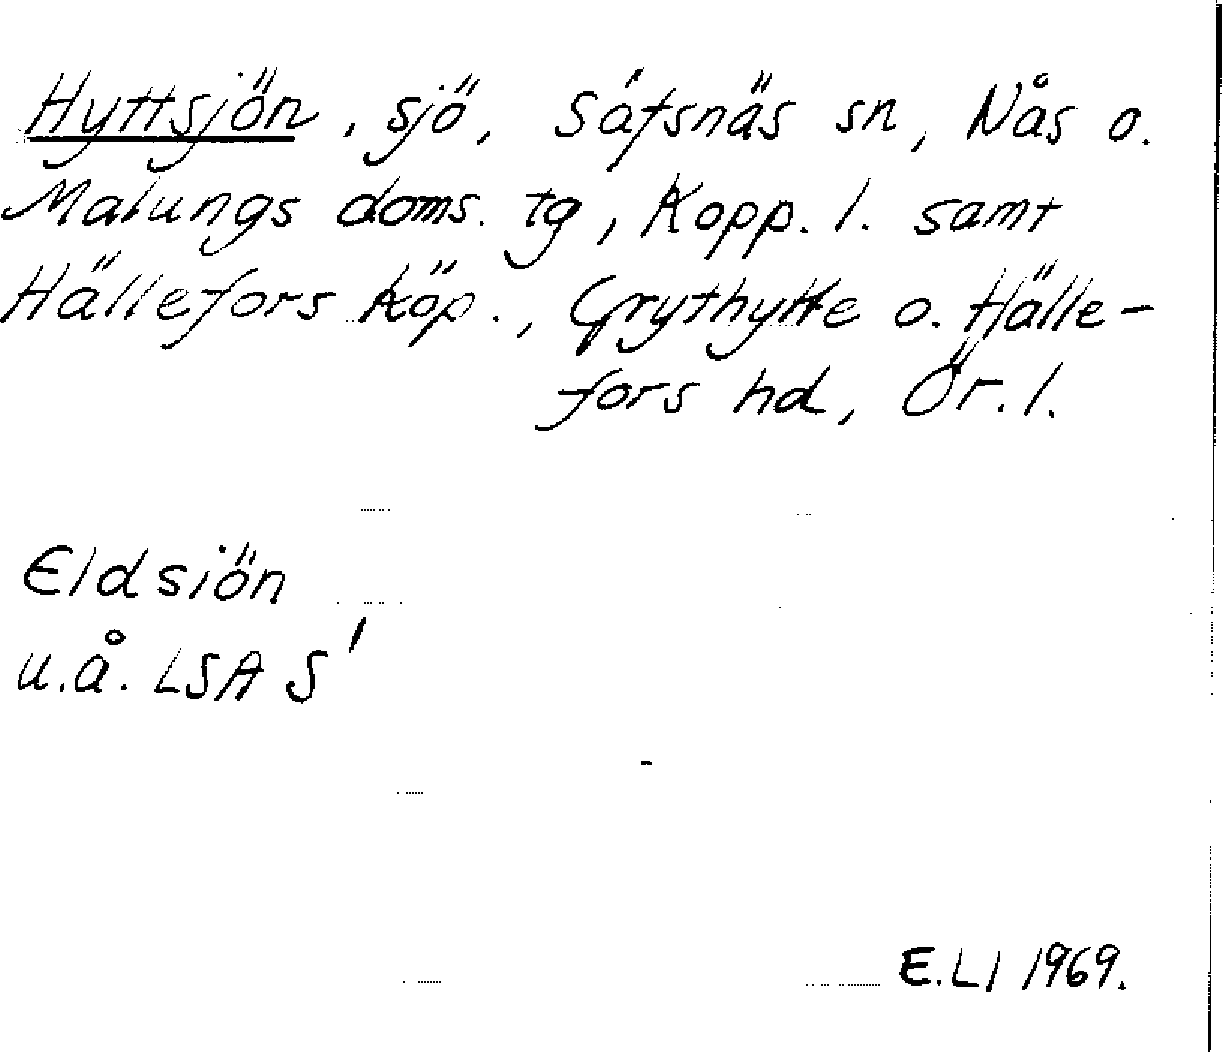 Hyttsjön, sjö, Säfsnäs sn, Nås o.
Malungs doms. tg, Kopp. l. samt
Hällefors köp., Grythytte o. Hälle-
fors hd, Ör. l.
Eldsiön
u.å. LSA S'
E. LI 1969.